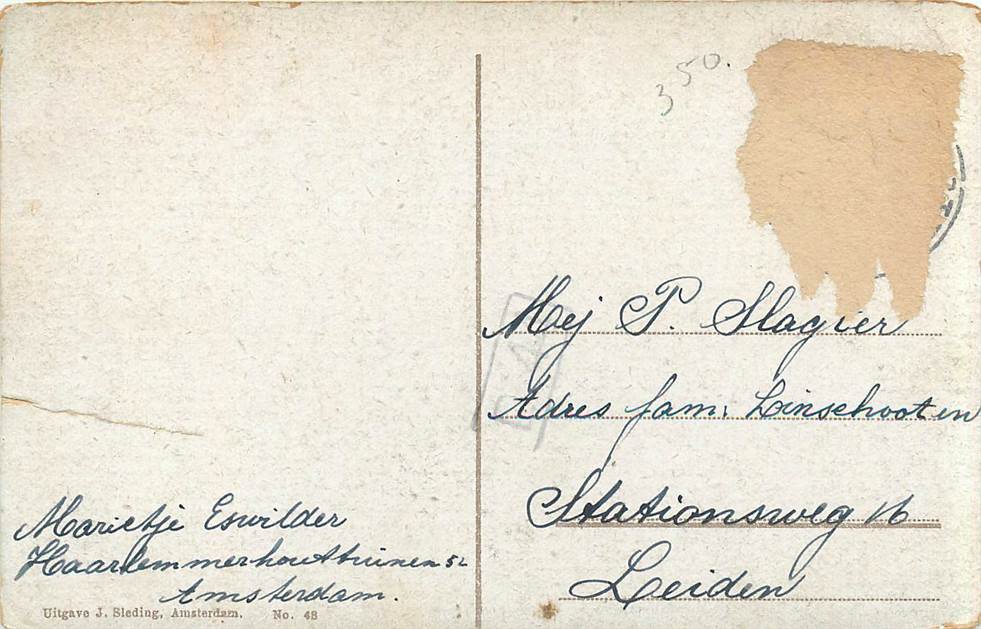 350.
Mej P. Slagier
Adres fam: Linschooten
Stationsweg 16
Leiden
Marietje Eswilder
Haarlemmerhouttuinen 52
Amsterdam.
Uitgave J. Sleding, Amsterdam. No. 48